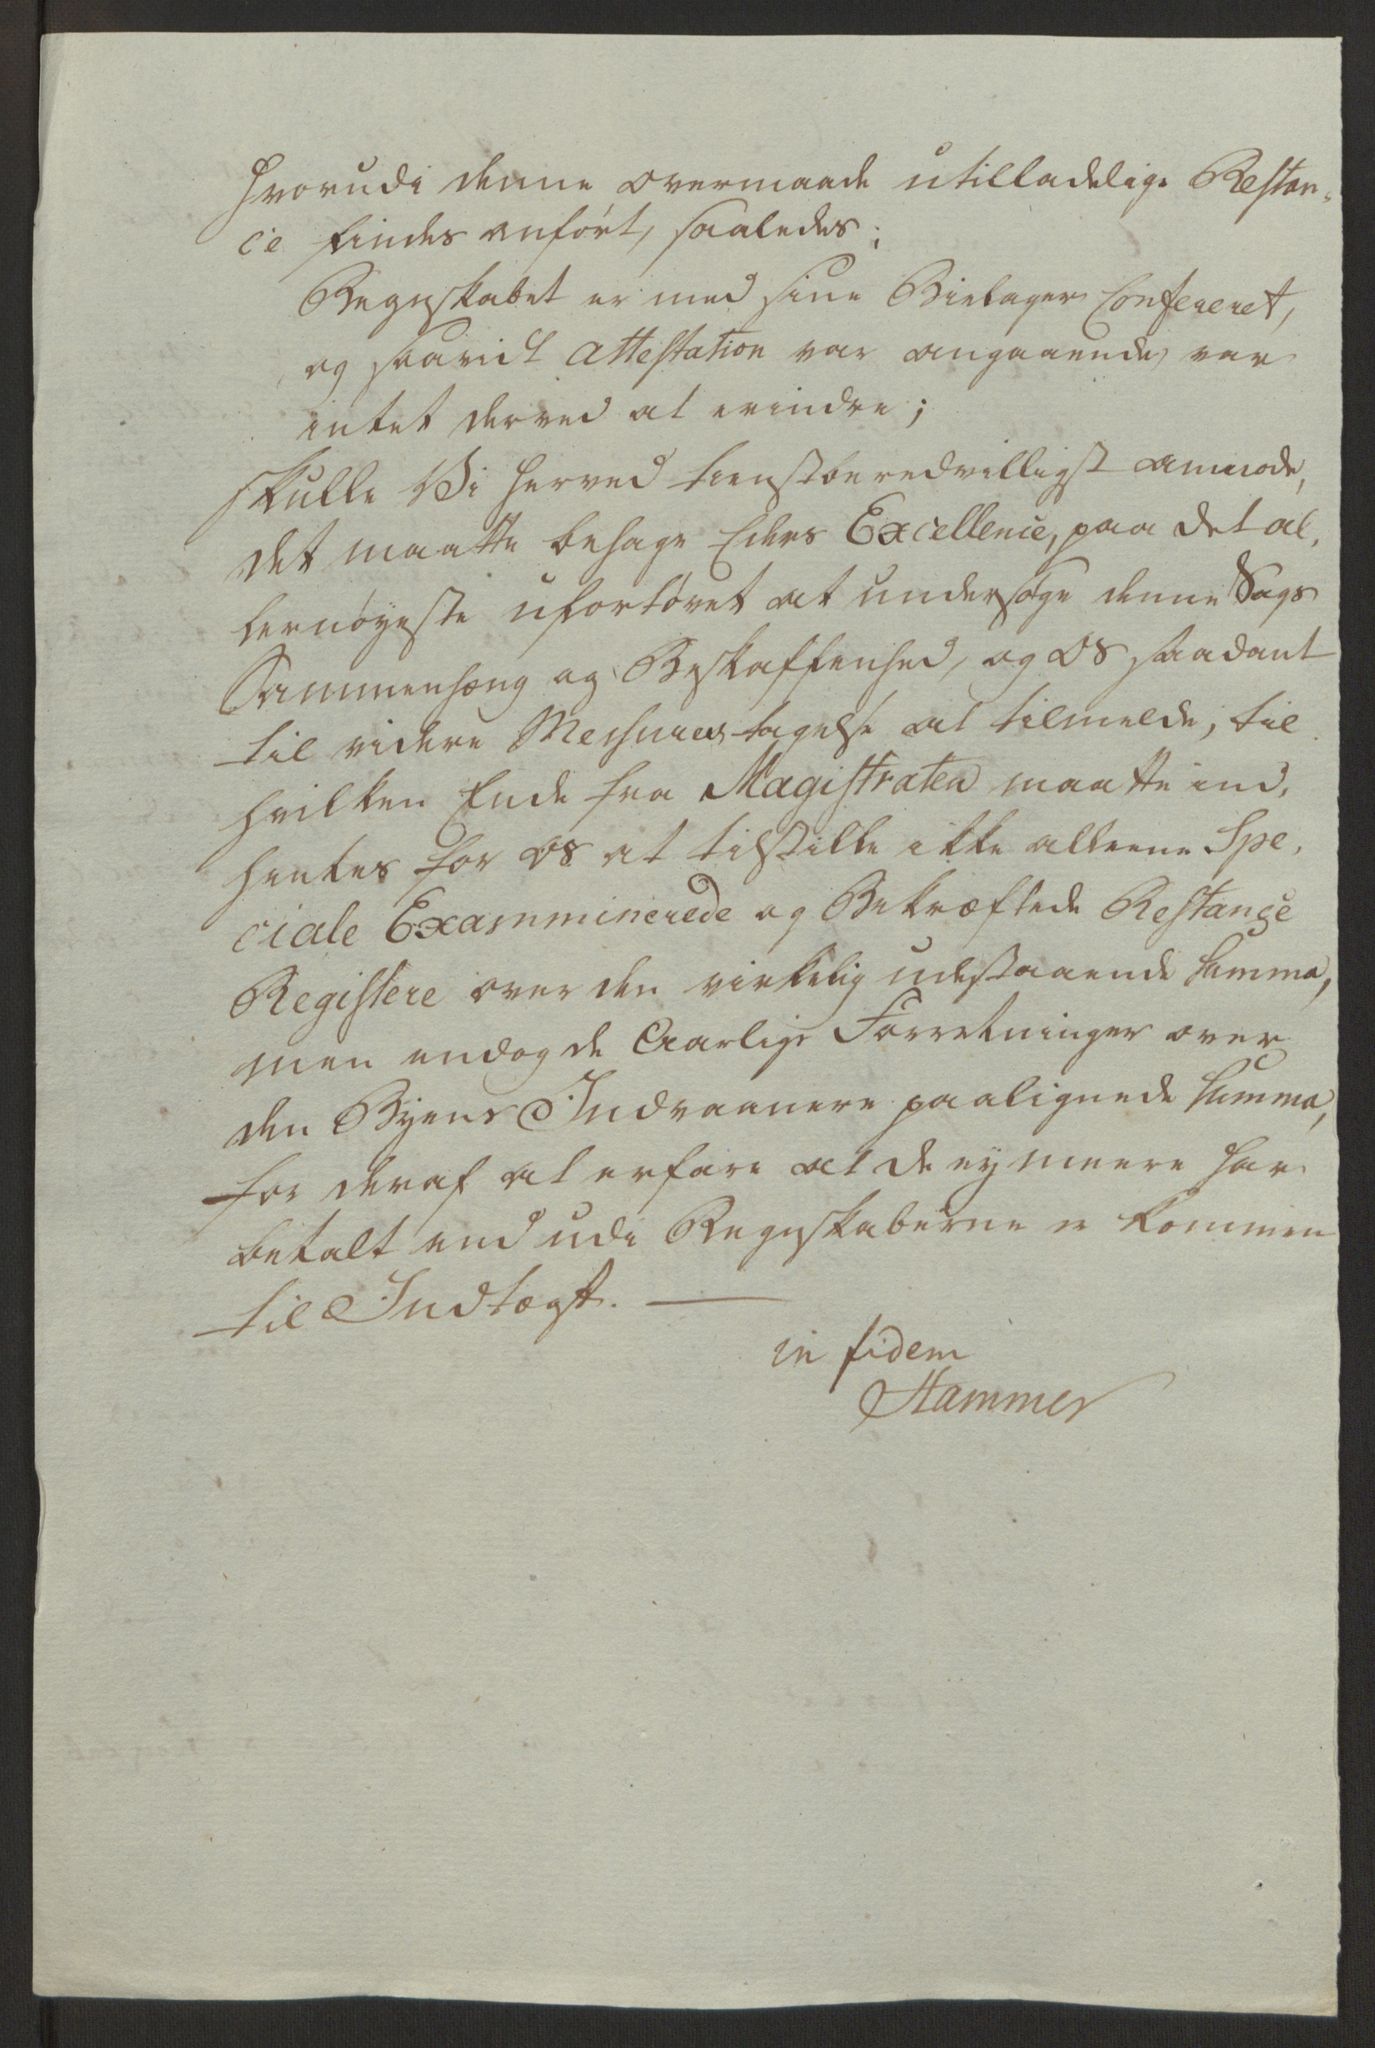 hvorudi denne overmaade utilladelige Restan-
ce findes anført, saaledes;
Regnskabet er med sine Bielager Confereret,
og saavidt Attestation var angaaende, var
intet derved at erindre;
skulle Vi herved tienstberedvilligst anmode,
det maatte behage Eders Excellence, paa det al-
lernøyeste ufortøvet at undersøge denne Sags
Sammenhæng og Beskaffenhed, og os saadant
til videre Mesures tagelse at tilmelde, til
hvilken Ende fra Magistraten maatte ind-
hentes for os at tilstille ikke alleene Spe-
ciale Examminerede og Bekræftede Restance
Registere over den virkelig udestaaende Summa,
men endog de Aarlige Forretninger over
den Byens Indvaanere paalignede Summa,
for deraf at erfare at de ey meere har
betalt end udi Regnskaberne er kommen
til Indtægt.
in fidem
Hammer